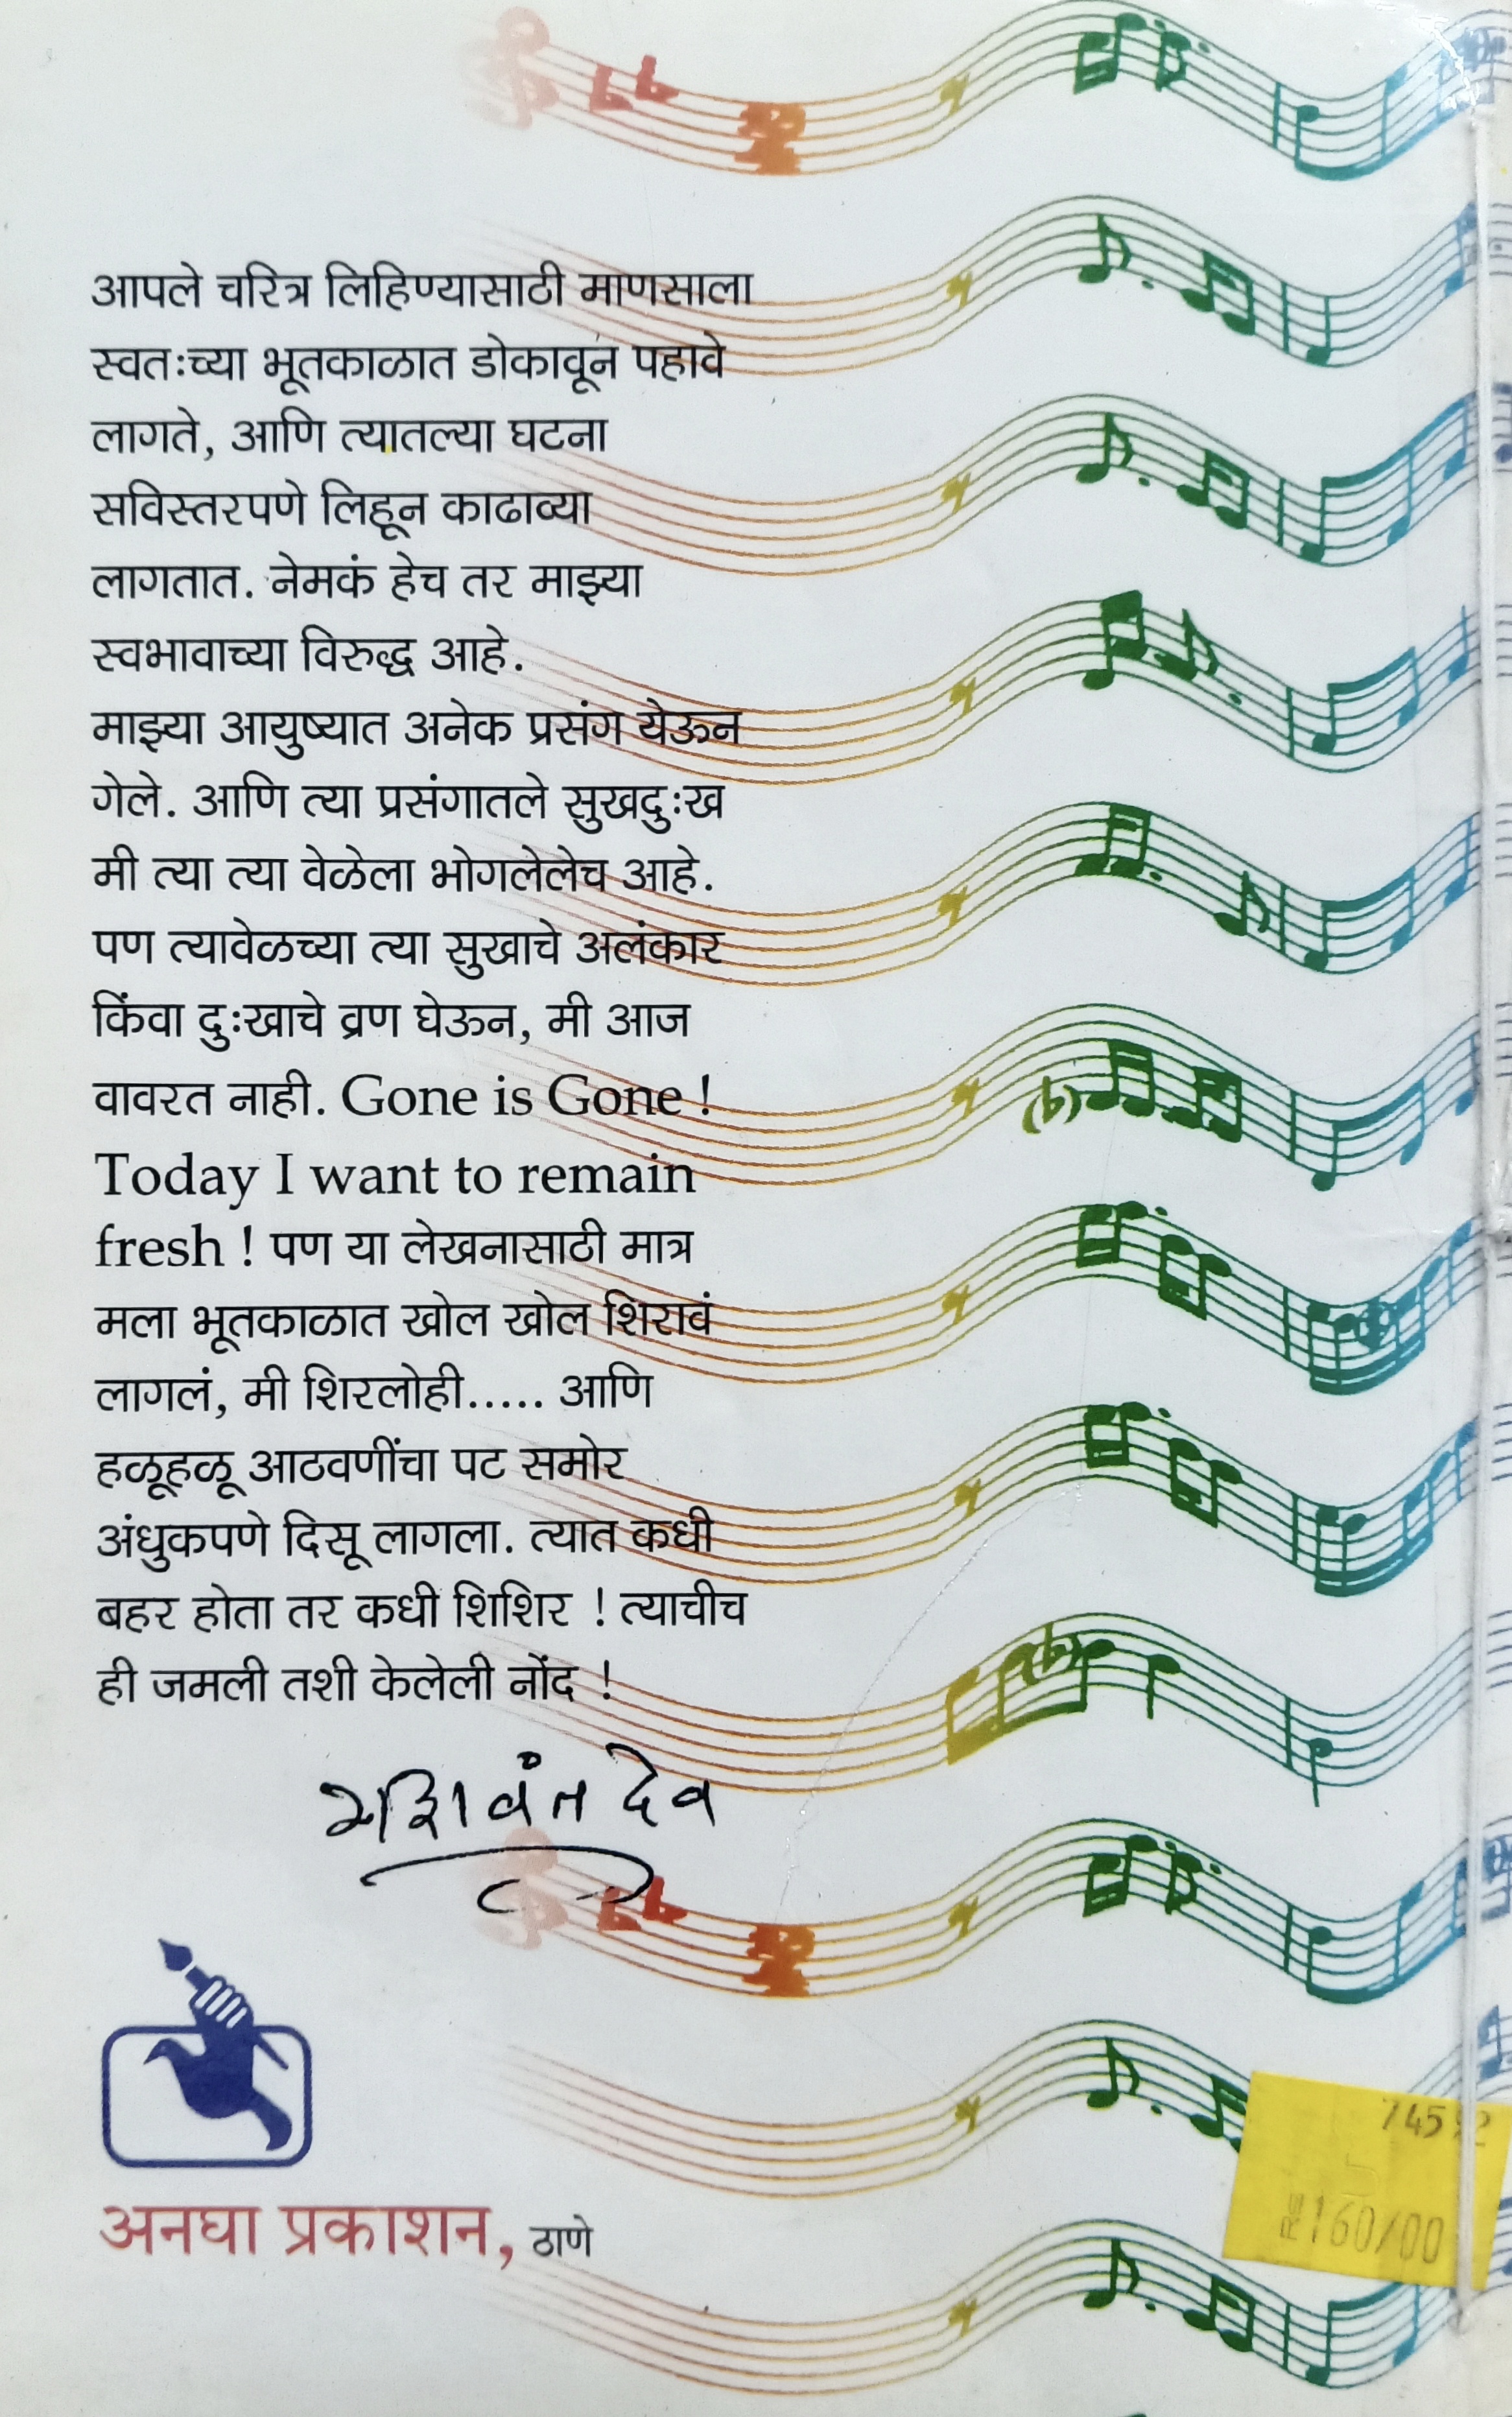 आपले चरित्र लिहिण्यासाठी माणसाला
स्वतःच्या भूतकाळात डोकावून पहावे
लागते, आणि त्यातल्या घटना
सविस्तरपणे लिहून काढाव्या
लागतात. नेमकं हेच तर माझ्या
स्वभावाच्या विरुद्ध आहे.
माझ्या आयुष्यात अनेक प्रसंग येऊन
गेले. आणि त्या प्रसंगातले सुखदुःख
मी त्या त्या वेळेला भोगलेलेच आहे.
पण त्यावेळच्या त्या सुखाचे अलंकार
किंवा दुःखाचे व्रण घेऊन, मी आज
वावरत नाही. Gone is Gone !
Today I want to remain
fresh ! पण या लेखनासाठी मात्र
मला भूतकाळात खोल खोल शिरावं
लागलं, मी शिरलोही..... आणि
हळूहळू आठवणींचा पट समोर
अंधुकपणे दिसू लागला. त्यात कधी
बहर होता तर कधी शिशिर ! त्याचीच
ही जमली तशी केलेली नोंद !
यशवंत देव
अनघा प्रकाशन, ठाणे
160/00